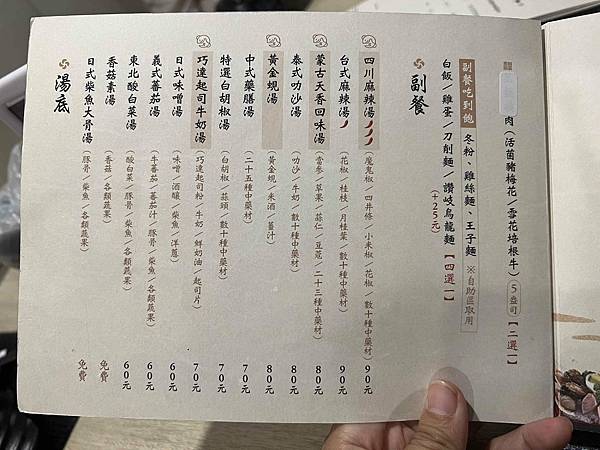 肉（活菌豬梅花／雪花培根牛）5盎司【二選一】
副餐吃到飽 冬粉、雞絲麵、王子麵 ※自助區取用
白飯／雞蛋／刀削麵／讚岐烏龍麵【四選一】
（+25元）
副餐
四川麻辣湯（魔鬼椒／四井條／小米椒／花椒／數十種中藥材）90元
台式麻辣湯（花椒／桂枝／月桂葉／數十種中藥材）90元
蒙古天香回味湯（當參／草果／蒜仁／豆蔻／二十三種中藥材）80元
泰式叻沙湯（叻沙／牛奶／數十種中藥材）80元
黃金蜆湯（黃金蜆／米酒／薑汁）80元
中式藥膳湯（二十五種中藥材）70元
特選白胡椒湯（白胡椒／蒜頭／數十種中藥材）70元
巧達起司牛奶湯（巧達起司粉／牛奶／鮮奶油／起司片）70元
日式味噌湯（味噌／酒釀／柴魚／洋蔥）60元
義式蕃茄湯（牛蕃茄／蕃茄汁／豚骨／柴魚／各類蔬果）60元
東北酸白菜湯（酸白菜／豚骨／柴魚／各類蔬果）60元
香菇素湯（香菇／各類蔬果）免費
日式柴魚大骨湯（豚骨／柴魚／各類蔬果）免費
湯底